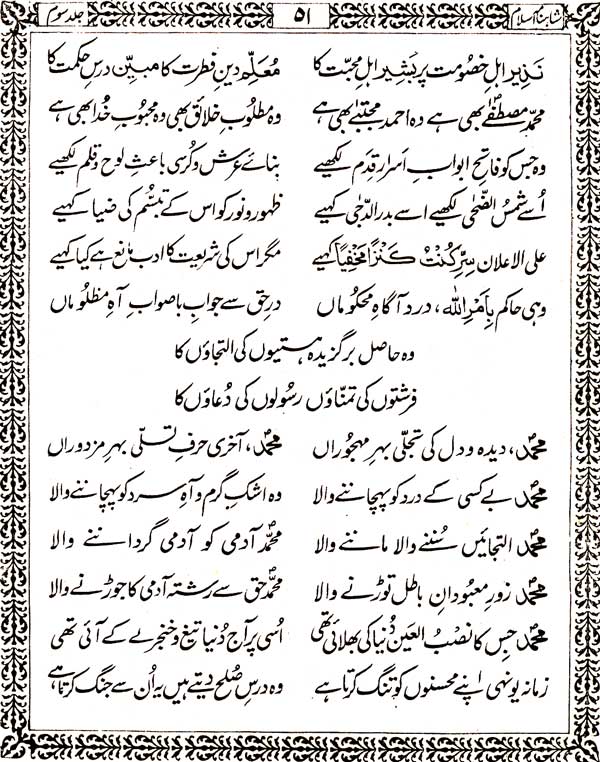 شاہنامہ اسلام ۵۱ جلد سوم
نذیر اہلِ خصومت پر بشیر اہلِ محبّت کا معلّم دینِ فطرت کا مبیّن درسِ حکمت کا
محمدؐ مصطفٰےؐ بھی ہے وہ احمد مجتبےٰؐ بھی ہے وہ مطلوبِ خلائق بھی وہ محبوبِ خُدا بھی ہے
وہ جس کو فاتحِ ابوابِ اَسرارِ قِدَم لکھیے بنائے عرش و کُرسی باعثِ لوح و قلم لکھیے
اُسے شمسُ الضّحٰی لکھیے اسے بدر الدّجٰی کہیے ظہورِ نور کو اس کے تبسّم کی ضیا کہیے
علی الاعلان سِرِّ کُنْتُ کَنْزاً مَخْفِیّاً کہیے مگر اس کی شریعت کا ادب مانع ہے کیا کہیے
وہی حاکم بِاَمْرِ اللہ، درد آگاہِ محکوماں درِ حق سے جوابِ باصوابِ آہِ مظلوماں
وہ حاصل برگزیدہ ہستیوں کی التجاؤں کا
فرشتوں کی تمنّاؤں رسُولوں کی دُعاؤں کا
محمدؐ، دیدہ و دل کی تجلّی بہرِ مہجوراں محمدؐ، آخری حرفِ تسلّی بہرِ مزدوراں
محمدؐ بے کسی کے درد کو پہچاننے والا وہ اشکِ گرم و آہِ سرد کو پہچاننے والا
محمدؐ التجائیں سُننے والا ماننے والا محمدؐ آدمی کو آدمی گرداننے والا
محمدؐ زورِ معبودانِ باطل توڑنے والا محمدؐ حق سے رشتہ آدمی کا جوڑنے والا
محمدؐ جس کا نصْبُ العین دُنیا کی بھلائی تھی اُسی پر آج دُنیا تیغ و خنجر لے کے آئی تھی
زمانہ یونہی اپنے محسنوں کو تنگ کرتا ہے وہ درسِ صُلح دیتے ہیں یہ اُن سے جنگ کرتا ہے